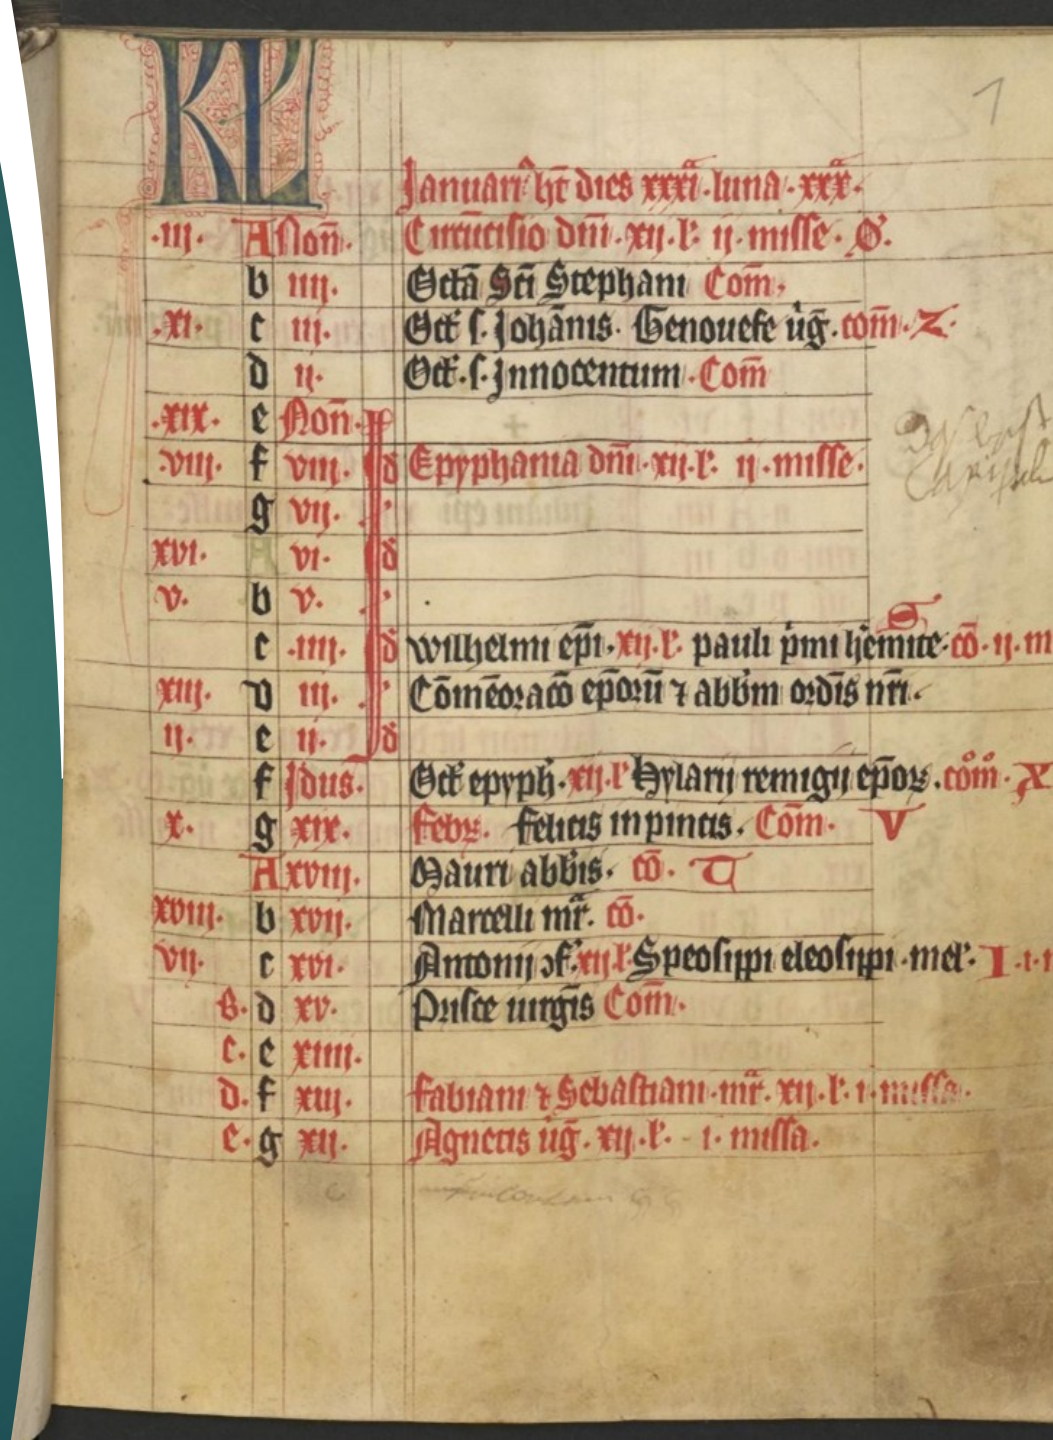 KL
Januari᷒ ht̄ dies xxxi · luna · xxx ·
· iii · A Non̄ · Circūcisio dn̄i · xij · l · ij · misse ·
b iiij · Octā Sc̄i Stephani Com̄ ·
· xi · c iii · Oct̄ s · Johānis · Genouefe uiḡ · com̄ · Z ·
d ij · Oct̄ · s · Innocentum · Com̄
· xix · e Non̄ ·
· viii · f viii · d Epyphania dn̄i · xij · l · ij · misse ·
g vij ·
xvi · A vi · d
v · b v ·
c · iiij · d wilhelmi ep̄i · xij · l · pauli p̄mi h̄emite · cō · ij · m
xiij · d iij · Cōmēoracō ep̄orū ⁊ abb̄m ordīs nr̄i ·
ij · e ij · d
f Idus · Oct̄ epyph̄ · xij · l Hylarij remigij ep̄oꝝ · com̄ · X
x · g xix · febꝝ · felicis in pincis · Com̄ · V
A xviii · Mauri abb̄is · cō · T
xviii · b xvij · Marcelli mr̄ · cō ·
vij · c xvi · Antonij ↄf · xij · l · Speosippi eleosippi · mel · I · i ·
B · d xv · Prisce uirgīs Com̄ ·
c · e xiiii ·
d · f xiij · fabiani ⁊ Sebastiani · mr̄ · xij · l · i · missa ·
e · g xij · Agnetis uiḡ · xij · l · i · missa ·